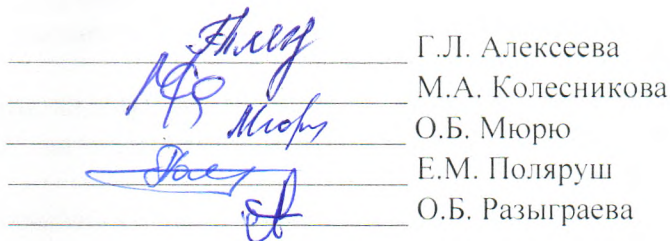 Г.Л. Алексеева
М.А. Колесникова
О.Б. Мюрю
Е.М. Поляруш
О.Б. Разыграева